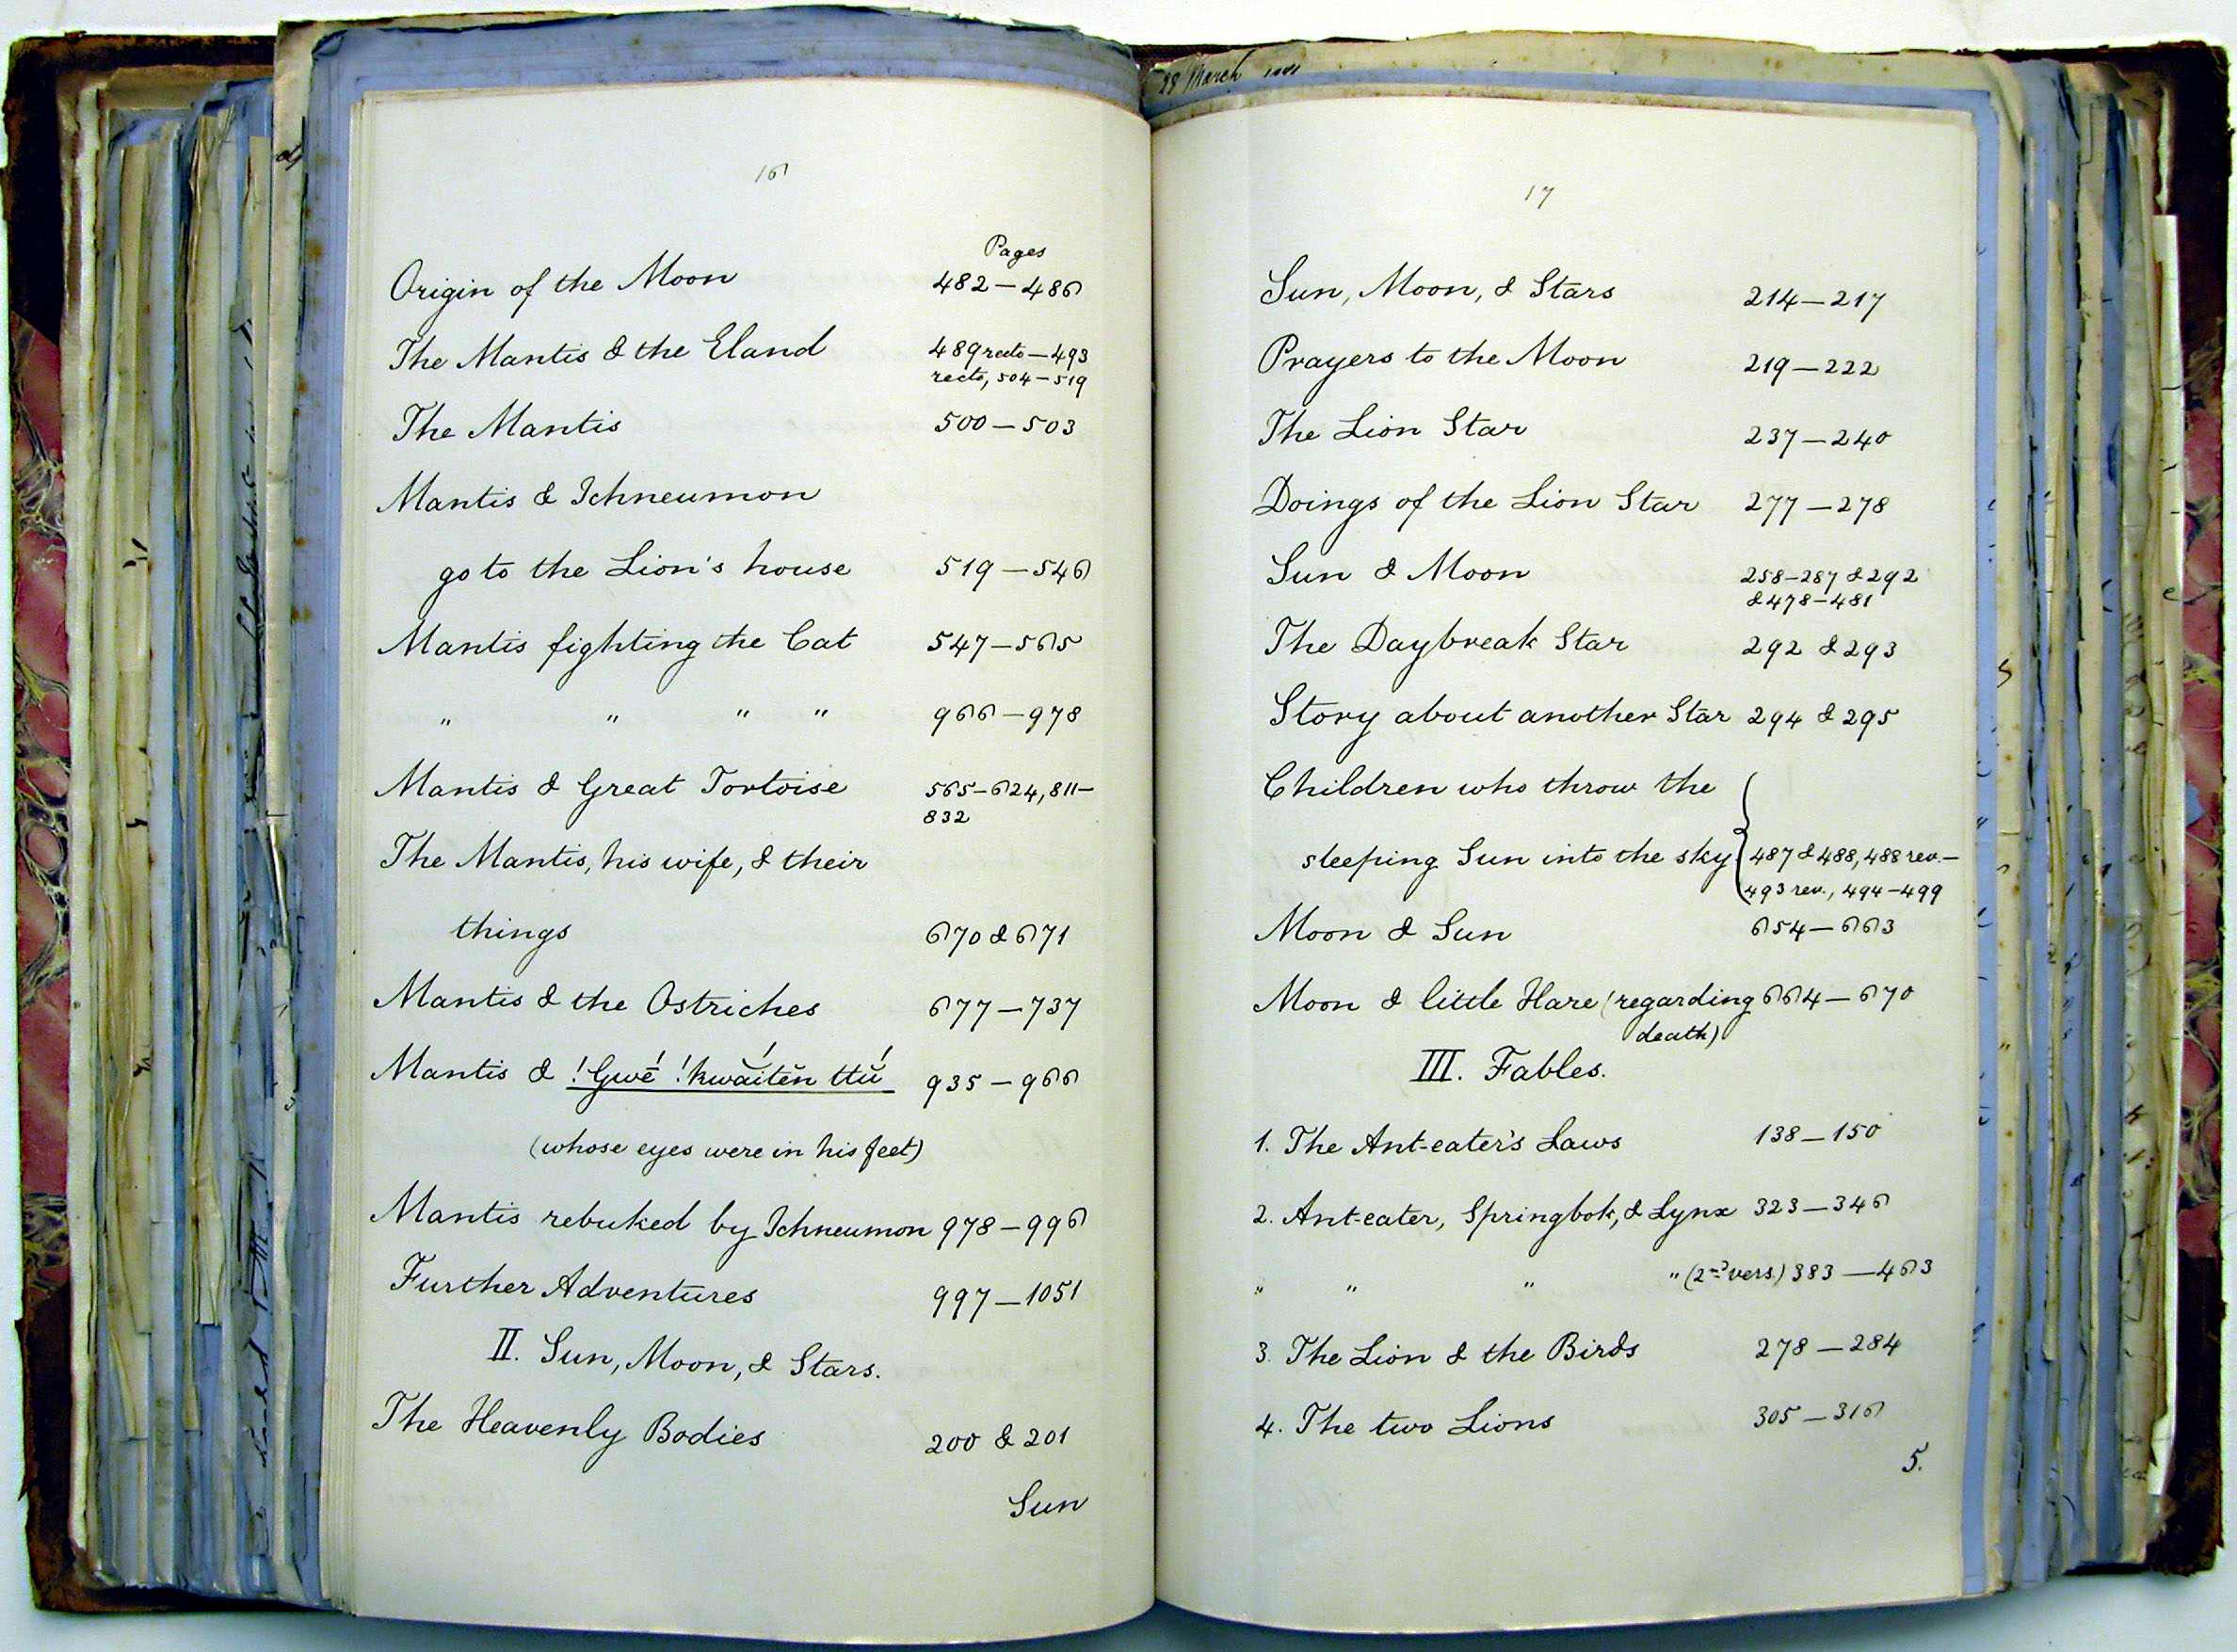 16
Pages
Origin of the Moon 482–486
The Mantis & the Eland 489 recto–493
recto, 504–519
The Mantis 500–503
Mantis & Ichneumon
go to the Lion's house 519–546
Mantis fighting the Cat 547–565
" " " " 966–978
Mantis & Great Tortoise 565–624, 811–
832
The Mantis, his wife, & their
things 670 & 671
Mantis & the Ostriches 677–737
Mantis & !Gwḗ !kwā́itĕn ttŭ́ 935–966
(whose eyes were in his feet)
Mantis rebuked by Ichneumon 978–996
Further Adventures 997–1051
II. Sun, Moon, & Stars.
The Heavenly Bodies 200 & 201
Sun
28 March
17
Sun, Moon, & Stars 214–217
Prayers to the Moon 219–222
The Lion Star 237–240
Doings of the Lion Star 277–278
Sun & Moon 258–287 & 292
& 478–481
The Daybreak Star 292 & 293
Story about another Star 294 & 295
Children who throw the
sleeping Sun into the sky 487 & 488, 488 rev.–
493 rev., 494–499
Moon & Sun 654–663
Moon & little Hare (regarding 664–670
death)
III. Fables.
1. The Ant-eater's Laws 138–150
2. Ant-eater, Springbok, & Lynx 323–346
" " " " (2nd vers.) 383–463
3. The Lion & the Birds 278–284
4. The two Lions 305–316
5.